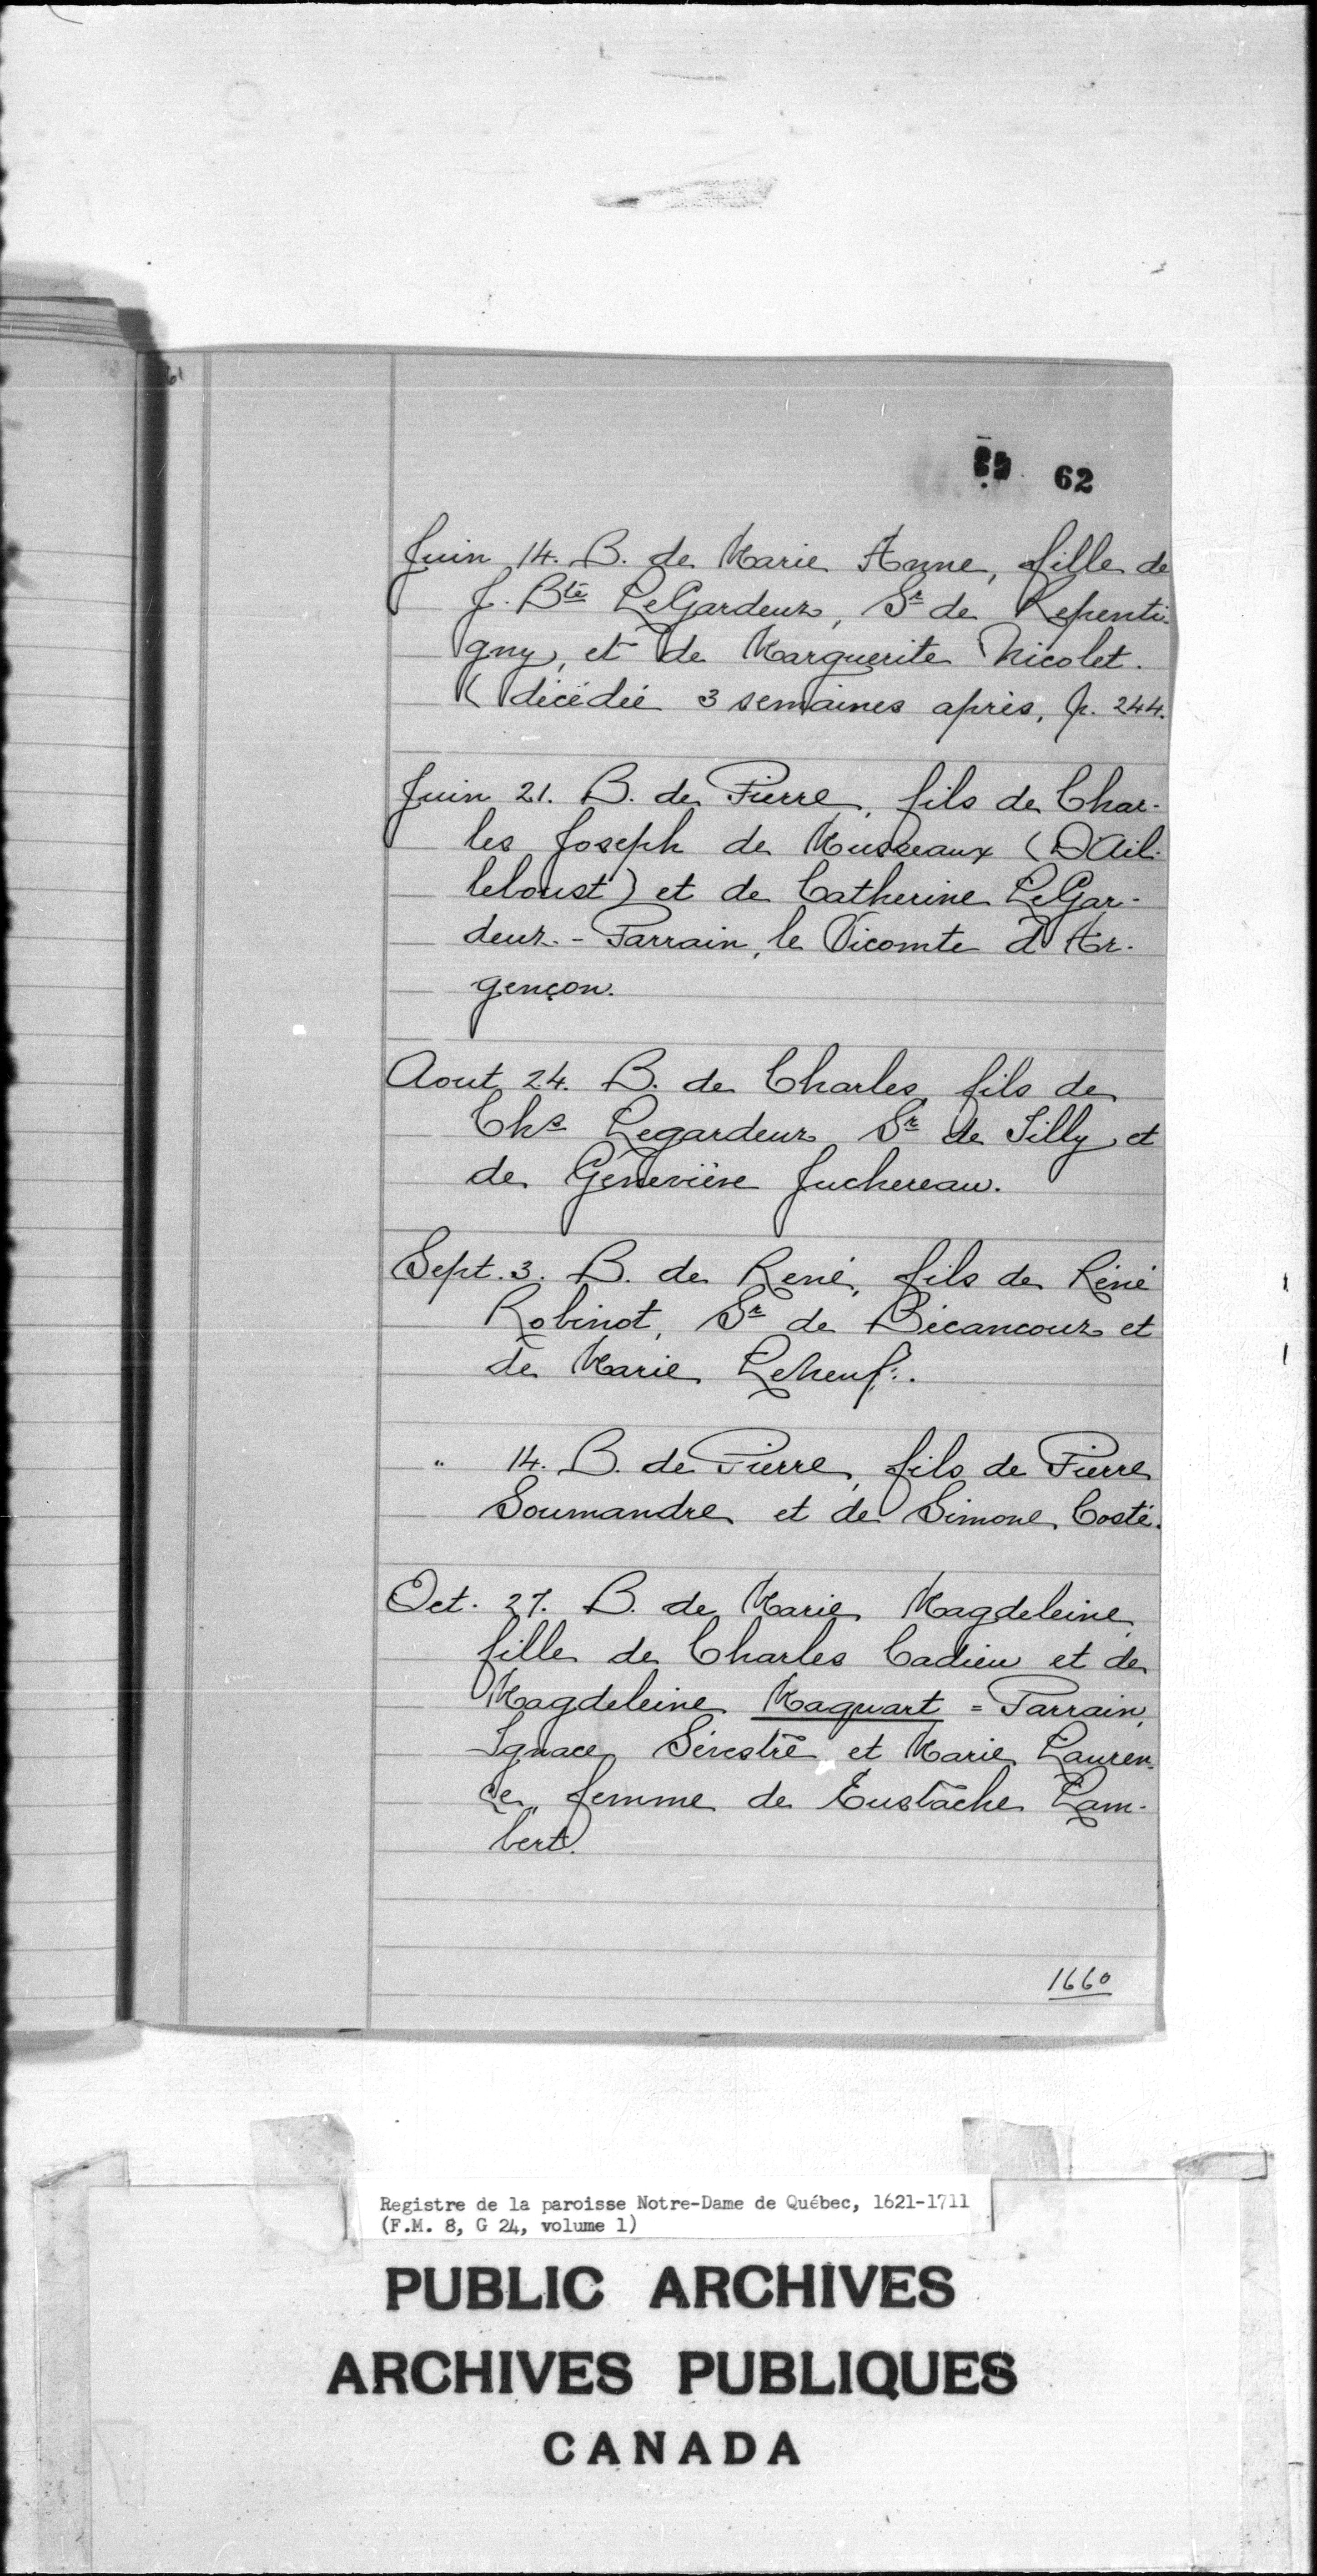 61
62
Juin 14. B. de Marie Anne, fille de
J. Bte LeGardeur, Sr de Repenti-
gny, et de Marguerite Nicolet.
(décédée 3 semaines après, p. 244.
Juin 21. B. de Pierre, fils de Char-
les Joseph de Musseaux (D'Ail-
leboust) et de Catherine LeGar-
deur. - Parrain, le Vicomte d'Ar-
gençon.
Aout 24. B. de Charles, fils de
Chs Legardeur, Sr de Tilly, et
de Geneviève Juchereau.
Sept. 3. B. de René, fils de Réné
Robinot, Sr de Bécancour et
de Marie LeNeuf.
" 14. B. de Pierre, fils de Pierre
Soumandre et de Simone Costé.
Oct. 27. B. de Marie Magdeleine,
fille de Charles Cadieu et de
Magdeleine Maquart = Parrain,
Ignace Sévestre et Marie Lauren-
ce, femme de Eustache Lam-
bert.
1660
Registre de la paroisse Notre-Dame de Québec, 1621-1711
(F.M. 8, G 24, volume 1)
PUBLIC ARCHIVES
ARCHIVES PUBLIQUES
CANADA